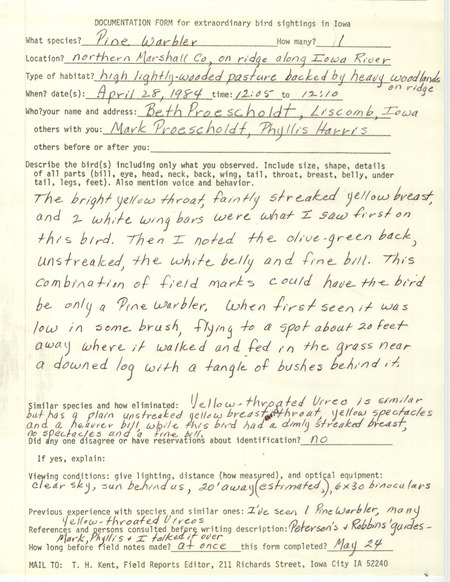 DOCUMENTATION FORM for extraordinary bird sightings in Iowa
What species? Pine Warbler How many? 1
Location? northern Marshall Co, on ridge along Iowa River
Type of habitat? high lightly-wooded pasture backed by heavy woodlands
on ridge
When? date(s): April 28, 1984 time: 12:05 to 12:10
Who? your name and address: Beth Proescholdt, Liscomb, Iowa
others with you: Mark Proescholdt, Phyllis Harris
others before or after you:
Describe the bird(s) including only what you observed. Include size, shape, details
of all parts (bill, eye, head, neck, back, wing, tail, throat, breast, belly, under
tail, legs, feet). Also mention voice and behavior.
The bright yellow throat, faintly streaked yellow breast,
and 2 white wing bars were what I saw first on
this bird. Then I noted the olive-green back,
unstreaked, the white belly and fine bill. This
combination of field marks could have the bird
be only a Pine Warbler. When first seen it was
low in some brush, flying to a spot about 20 feet
away where it walked and fed in the grass near
a downed log with a tangle of bushes behind it.
Similar species and how eliminated: Yellow-throated Vireo is similar
but has a plain unstreaked yellow breast and throat, yellow spectacles
and a heavier bill, while this bird had a dimly streaked breast,
no spectacles and a fine bill.
Did any one disagree or have reservations about identification? no
If yes, explain:
Viewing conditions: give lighting, distance (how measured), and optical equipment:
clear sky, sun behind us, 20' away (estimated), 6x30 binoculars
Previous experience with species and similar ones: I've seen 1 Pine Warbler, many
Yellow-throated Vireos
References and persons consulted before writing description: Peterson's & Robbins' guides -
Mark, Phyllis & I talked it over
How long before field notes made? at once this form completed? May 24
MAIL TO: T. H. Kent, Field Reports Editor, 211 Richards Street, Iowa City IA 52240